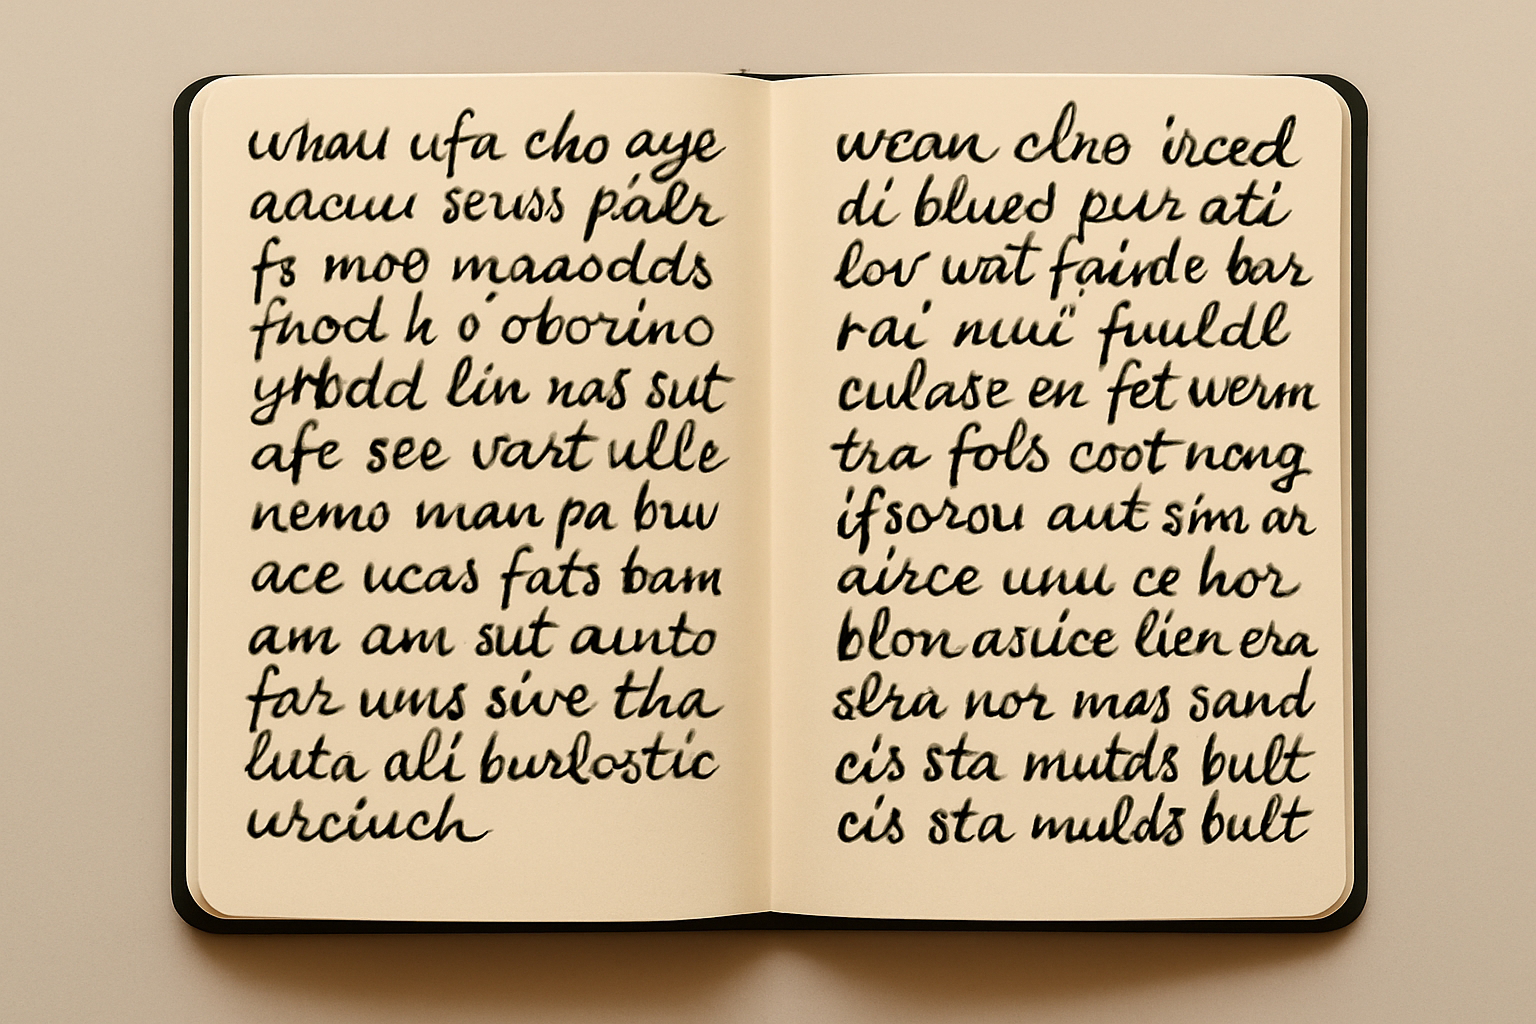 whau ufa cho aye
aacuu seuss pálr
fs moo maaodds
fnod h ó oborino
yrbdd lin nas sut
afe see vart ulle
nemo man pa buv
ace ucas fats bam
am am sut aunto
far ums sive tha
luta ali burlostic
urciuch
wean clno irced
di blued pur ati
lov wat fairde bar
rai nuuï fuuldl
culase en fet werm
tra fols coot ncng
ifsorou aut sim ar
airce unu ce hor
blon asuice lien era
slra nor mas sand
cis sta mutds bult
cis sta mulds bult